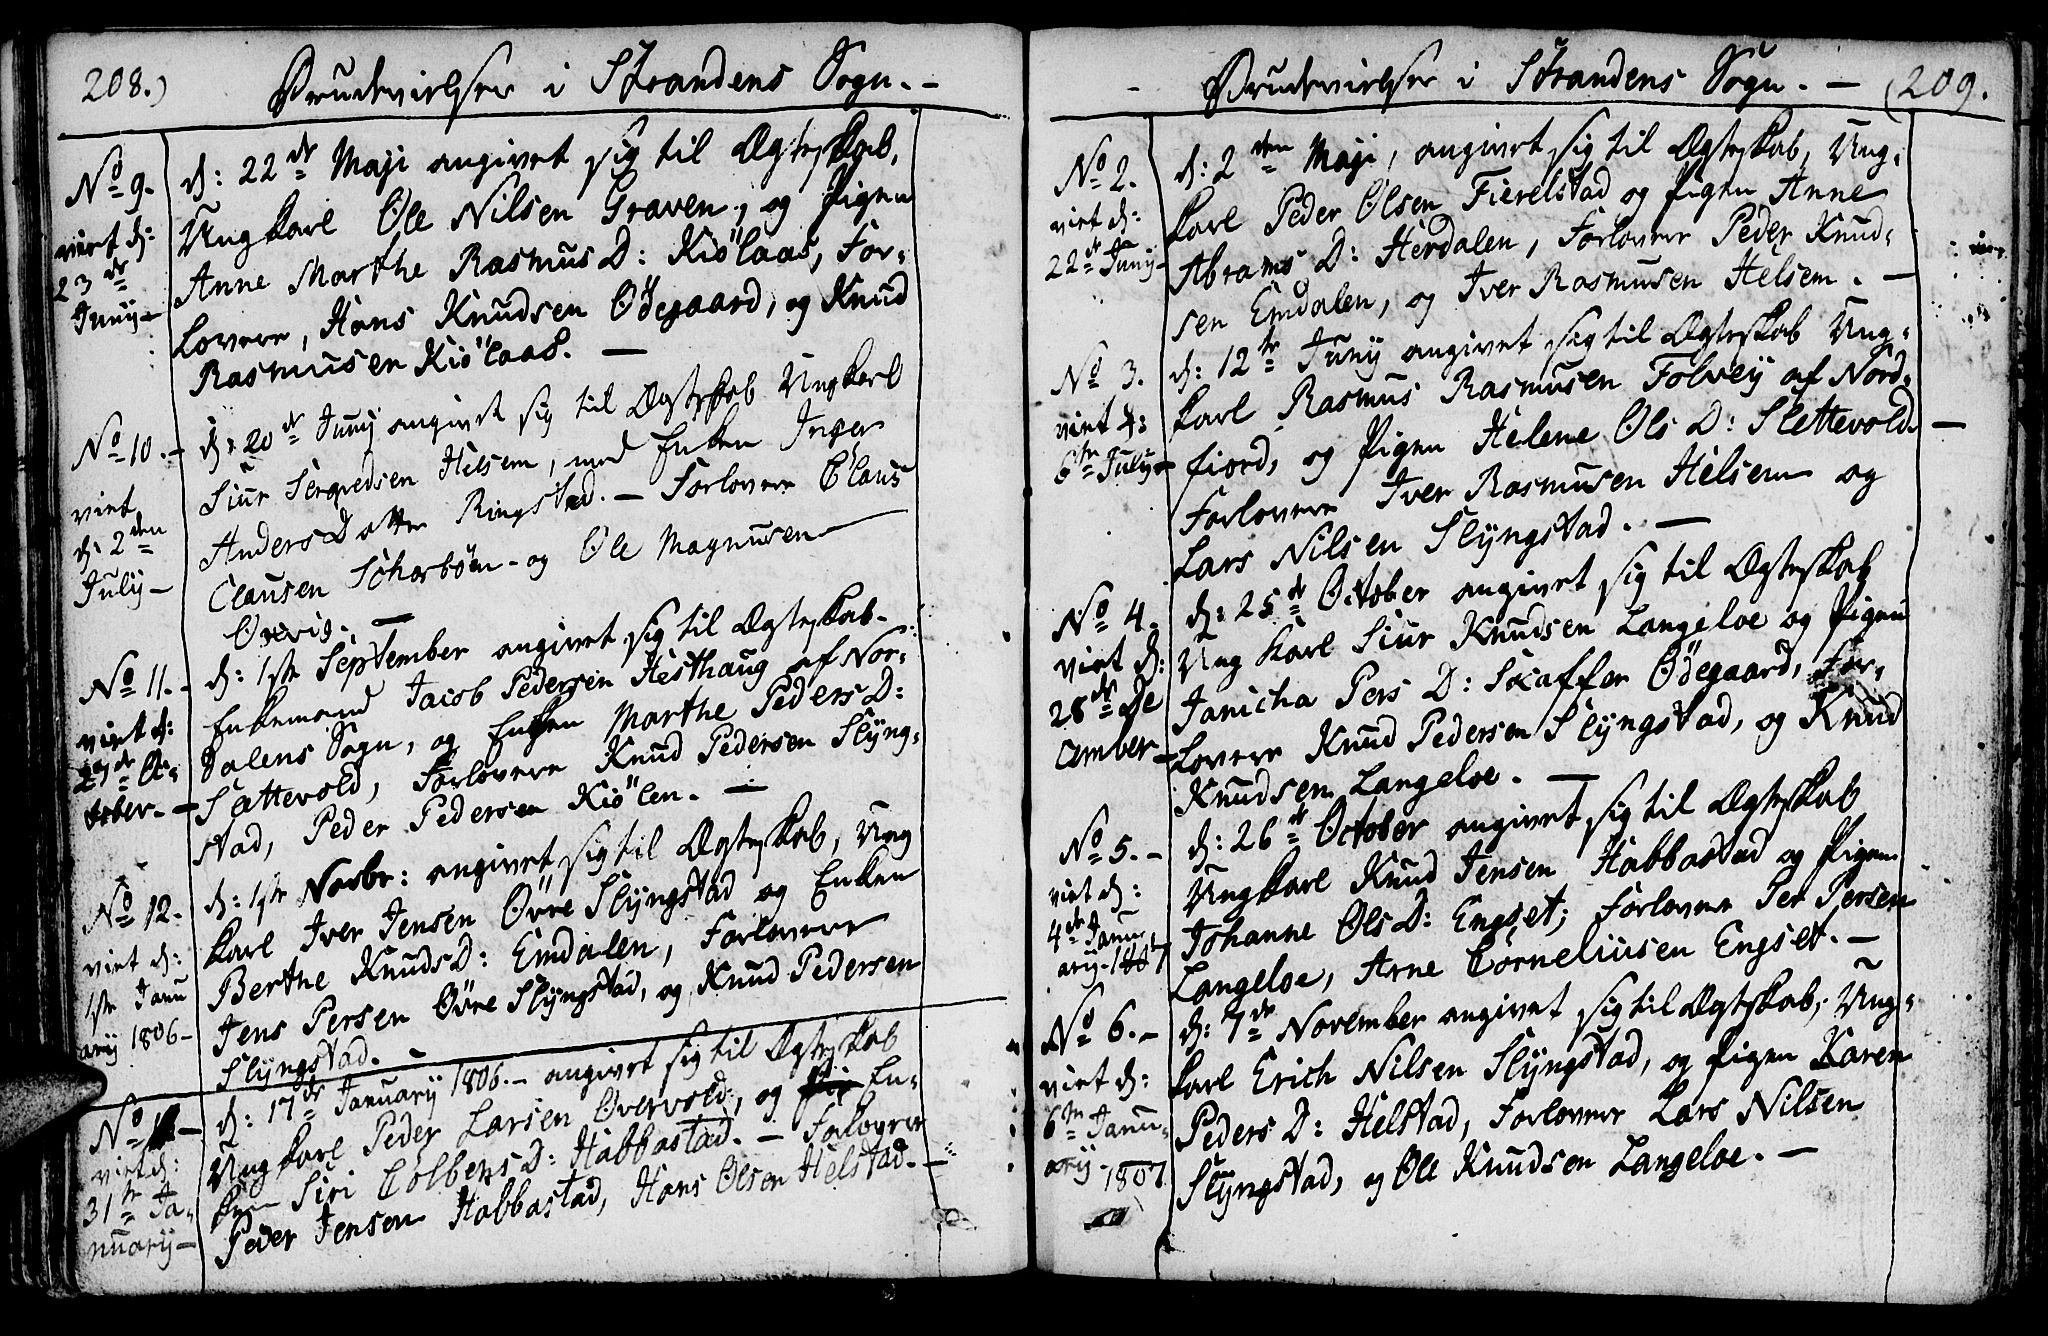 208.)
Brudevielser i Strandens Sogn. -
No 9.
viet d:
23 de
Junÿ -
d: 22 de Maji angivet sig til Ægteskab,
Ungkarl Ole Nilsen Graven, og Pigen
Anne Marthe Rasmus D: Kiölaas, For-
lovere, Hans Knudsen Ödegaard, og Knud
Rasmusen Kiölaas. —
No 10. -
viet
d: 2 den
Julÿ -
d: 20 de Junÿ angivet sig til Ægteskab Ungkarl
Siur Sergvedsen Helsem, med Enken Inger
Anders Datter Ringstad. - Forlovere Claus
Clausen Scharböen - og Ole Magnusen
Oxvig. —
No 11. -
viet d:
27 de Oc-
tober. -
d: 1ste September angivet sig til Ægteskab -
Enkemand Jacob Pedersen Hesthaug af Nor-
Dalens Sogn, og Enken Marthe Peders D:
Slattevold, Forlovere Knud Pedersen Slÿng-
stad, Peder Pedersen Kiölen. —
No 12.
viet d:
1ste Janu
arÿ 1806 -
d: 1ste Novbr: angivet sig til Ægteskab, Ung
karl Iver Jensen Övre Slÿngstad og Enken
Berthe Knuds D: Emdalen, Forlovere
Jens Persen Övre Slÿngstad, og Knud Pedersen
Slÿngstad. -
No 1 -
viet d:
31te Ja-
nuarÿ -
d: 17de Januarÿ 1806. - angivet sig til Ægteskab
Ungkarl Peder Larsen Overvold, og Pig En-
ken Siri Colbens D: Habbastad. - Forlovere
Peder Jensen Habbastad, Hans Olsen Helstad. -
Brudevielser i Strandens Sogn. - (209.
No 2.
viet d:
22de Junÿ -
d: 2den Maji, angivet sig til Ægteskab, Ung-
karl Peder Olsen Fierelstad og Pigen Anne
Abrams D: Herdalen, Forlovere Peder Knud-
sen Emdalen, og Iver Rasmusen Helsem. -
No 3.
viet d:
6te Julÿ -
d: 12te Junÿ angivet sig til Ægteskab Ung-
karl Rasmus Rasmusen Tolveÿ af Nord-
fiord, og Pigen Helene Ols D: Slettevold. -
Forlovere Iver Rasmusen Helsem og
Lars Nilsen Slÿngstad. —
No 4.
viet d:
28de De
cember -
d: 25de October angivet sig til Ægteskab
Ung karl Siur Knudsen Langeloe og Pigen
Janicha Pers D: Scaffer Ödegaard, For-
lovere Knud Pedersen Slÿngstad, og Knud
Knudsen Langeloe. —
No 5. -
viet d:
4de Janu-
arÿ - 1807
d: 26de October angivet sig til Ægteskab
Ungkarl Knud Jensen Habbastad og Pigen
Johanne Ols D: Engset; Forlovere Per Persen
Langeloe, Arne Corneliusen Engset. -
No 6. -
viet d:
6te Janu-
arÿ -
1807
d: 7de November angivet sig til Ægteskab, Ung-
karl Erich Nilsen Slÿngstad, og Pigen Karen
Peders D: Helstad, Forlovere Lars Nilsen
Slÿngstad, og Ole Knudsen Langeloe. -